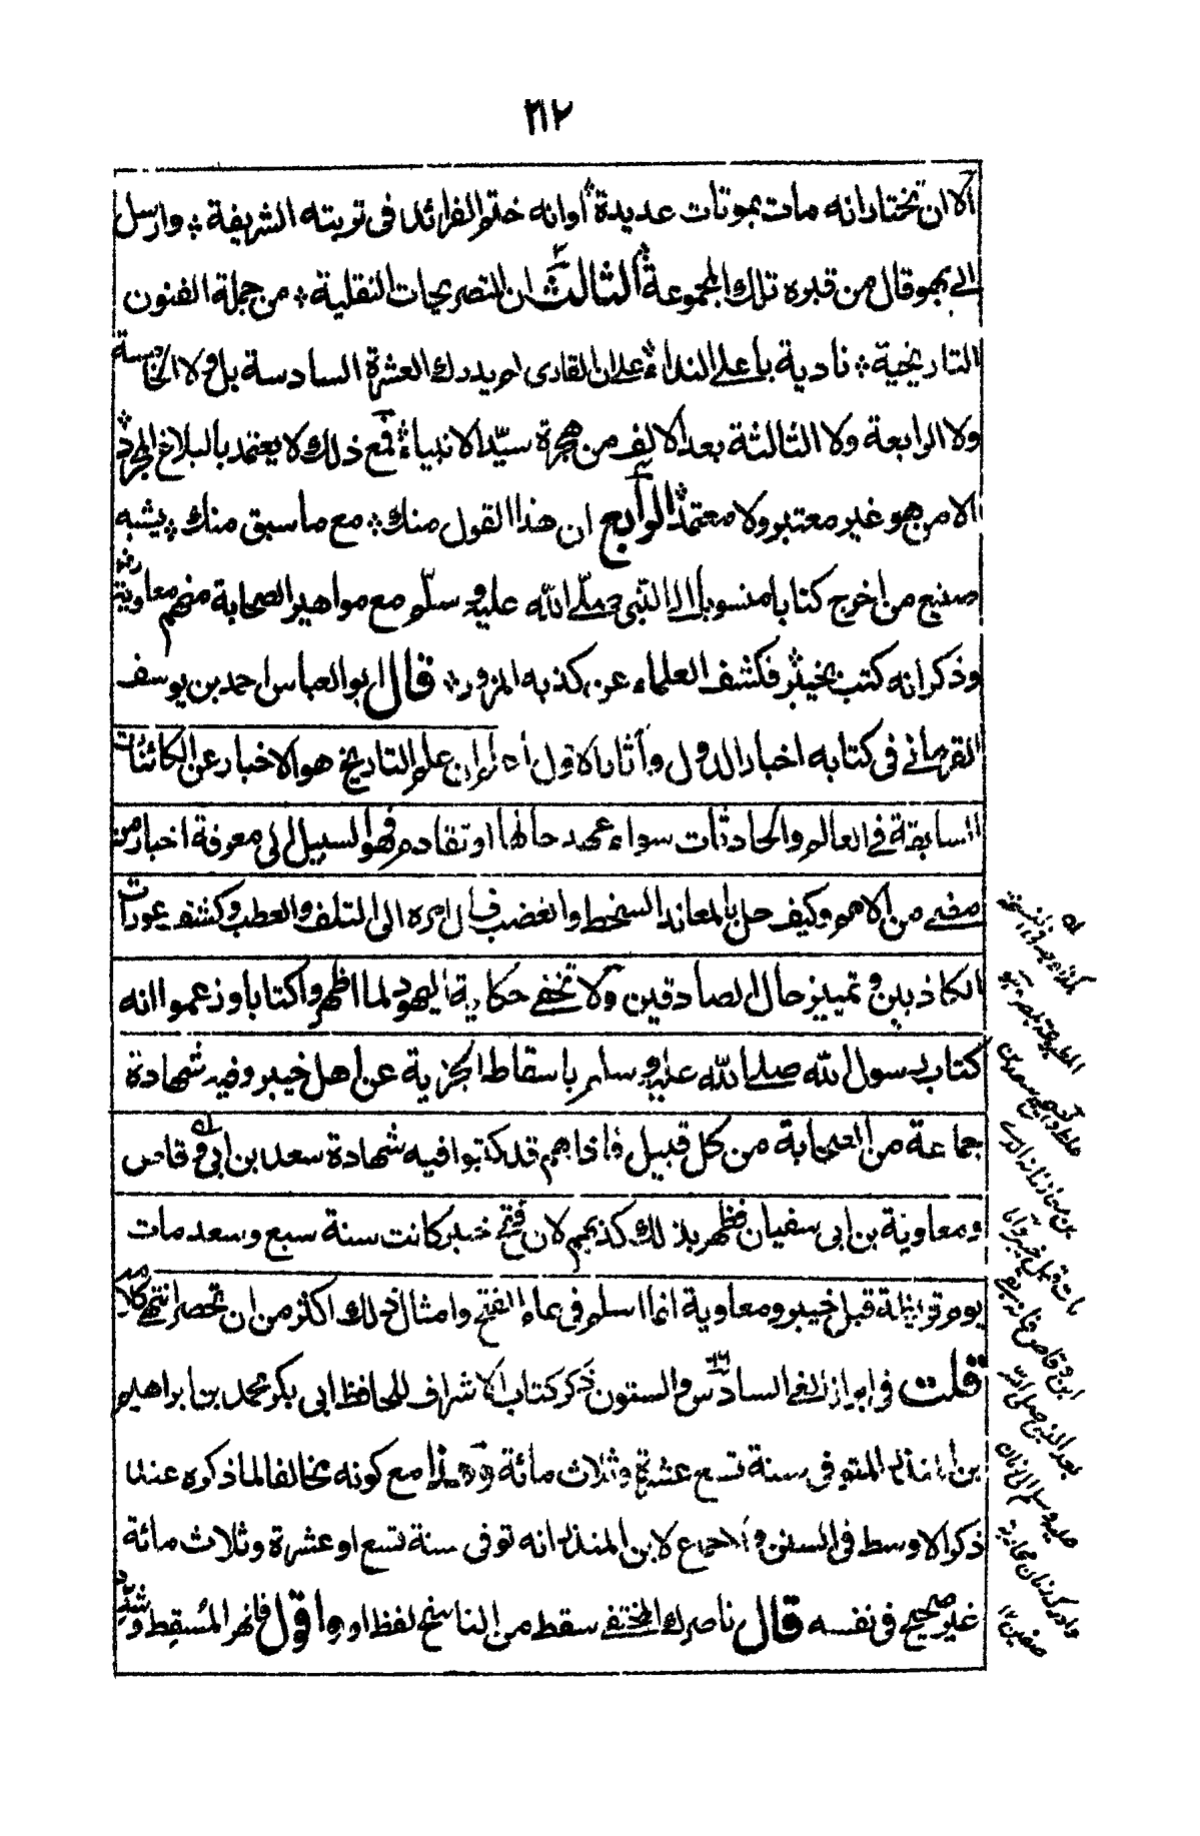 ٢١٢
الا ان تختار انه مات بموتات عديدة؞ او انه ختم الفرائد فى تربته الشريفة؞ وارسل
الى بهوقال من قبره تلك المجموعة؞ الثالث ان التصريحات النقلية؞ من جملة الفنون
التاريخية؞ نادية باعلى النداء؞ على ان القارى لم يدرك العشرة السادسة بل ولا الخامسة
ولا الرابعة ولا الثالثة بعد الالف من هجرة سيّد الانبياء؞ فمع ذلك لا يعتمد بالبلاغ المجرد؞
الا من هو غير معتبر ولا معتمد؞ الرابع ان هذا القول منك؞ مع ما سبق منك؞ يشبه
صنيع من اخرج كتابا منسوبا الى النبى صلى الله عليه وسلّم مع مواهير الصحابة منهم معاوية رض
وذكر انه كتب بخيبر؞ فكشف العلماء عن كذبه المزور؞ قال ابو العباس احمد بن يوسف
القرمانى فى كتابه اخبار الدول وآثار الاول ان علم التاريخ هو الاخبار عن الكائنات
السابقة فى العالم والحادثات سواء عهد حالها او تقادم فهو السبيل الى معرفة اخبار من
مضى من الامم وكيف حل بالمعاند السخط والغضب فآل امره الى التلف والعطب وكشف عورات
الكاذبين وتمييز حال الصادقين ولا تخفى حكاية اليهود لما اظهروا كتابا وزعموا انه
كتاب رسول الله صلى الله عليه وسلم باسقاط الجزية عن اهل خيبر وفيه شهادة
جماعة من الصحابة من كل قبيل فاذا هم قد كتبوا فيه شهادة سعد بن ابى وقاص
ومعاوية بن ابى سفيان فظهر بذلك كذبهم لان فتح خيبر كانت سنة سبع وسعد مات
يوم قريظة قبل خيبر ومعاوية انما اسلم فى عام الفتح وامثال ذلك اكثر من ان تحصر انتهى كلامه
قلت فى ابراز الغى السادس والستون ذكر كتاب الاشراف للحافظ ابى بكر محمد بن ابراهيم
بن المنذر المتوفى سنة تسع عشرة وثلاث مائة وهذا مع كونه مخالفا لما ذكره عند
ذكر الاوسط فى السنن والاجماع لابن المنذر انه توفى سنة تسع او عشرة وثلاث مائة
غير صحيح فى نفسه قال ناصرك المختفى سقط من الناسخ لفظ او واقول فانهر المُسقِط